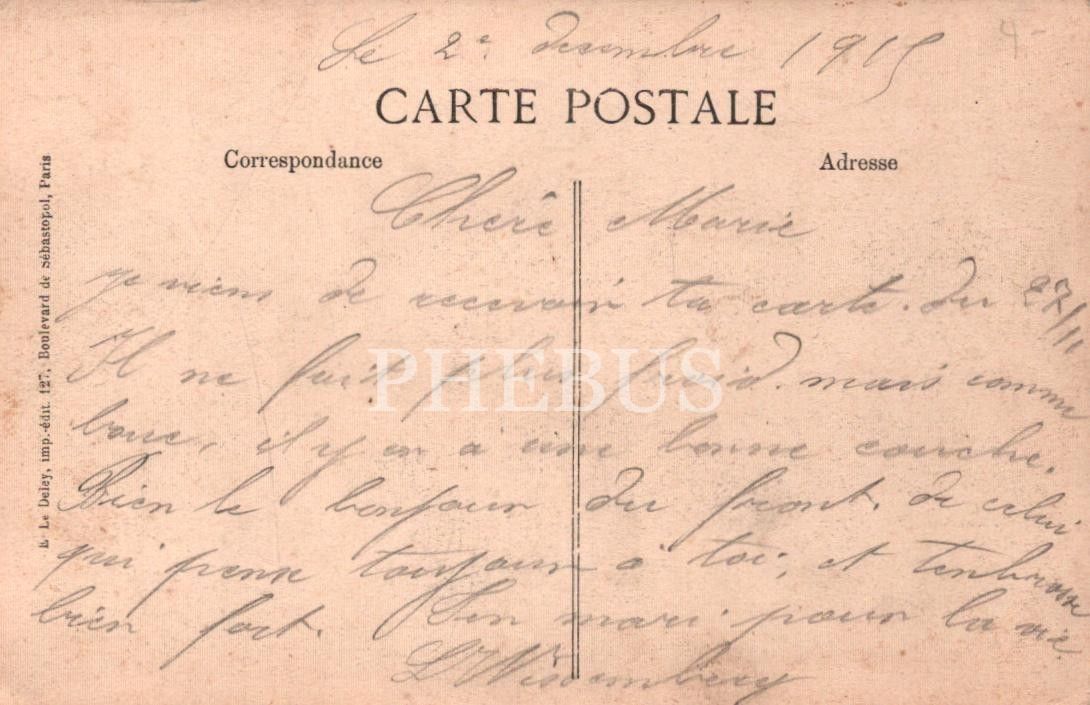 Le 2e decembre 1915
CARTE POSTALE
Correspondance
Adresse
Cherê Marie
je viens de recevoir ta carte. du 27/11
Il ne fait plus froid. mais comme
boue, il y en a une bonne couche.
Bien le bonjour du front. de celui
qui pense toujours a toi, et t'enbrasse
bien fort. Ton mari pour la vie
E. Le Deley, imp.-édit. 127, Boulevard de Sébastopol, Paris
PHEBUS